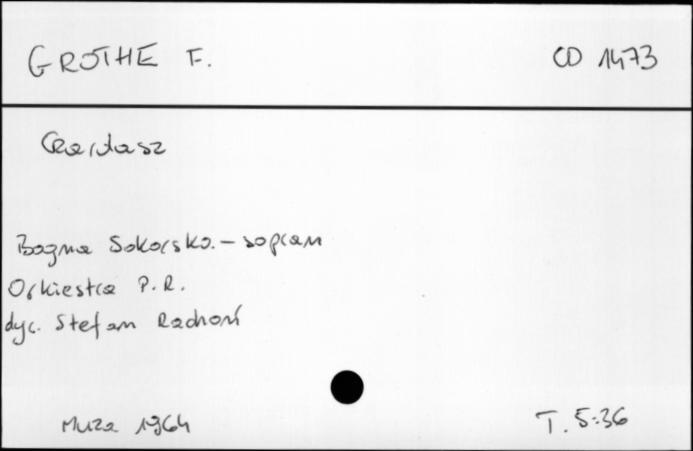 GROTHE F. CD 1473
Czardasz
Bogna Sokorska - sopran
Orkiestra P.R.
dyr. Stefan Rachoń
Muza 1964 T. 5:36